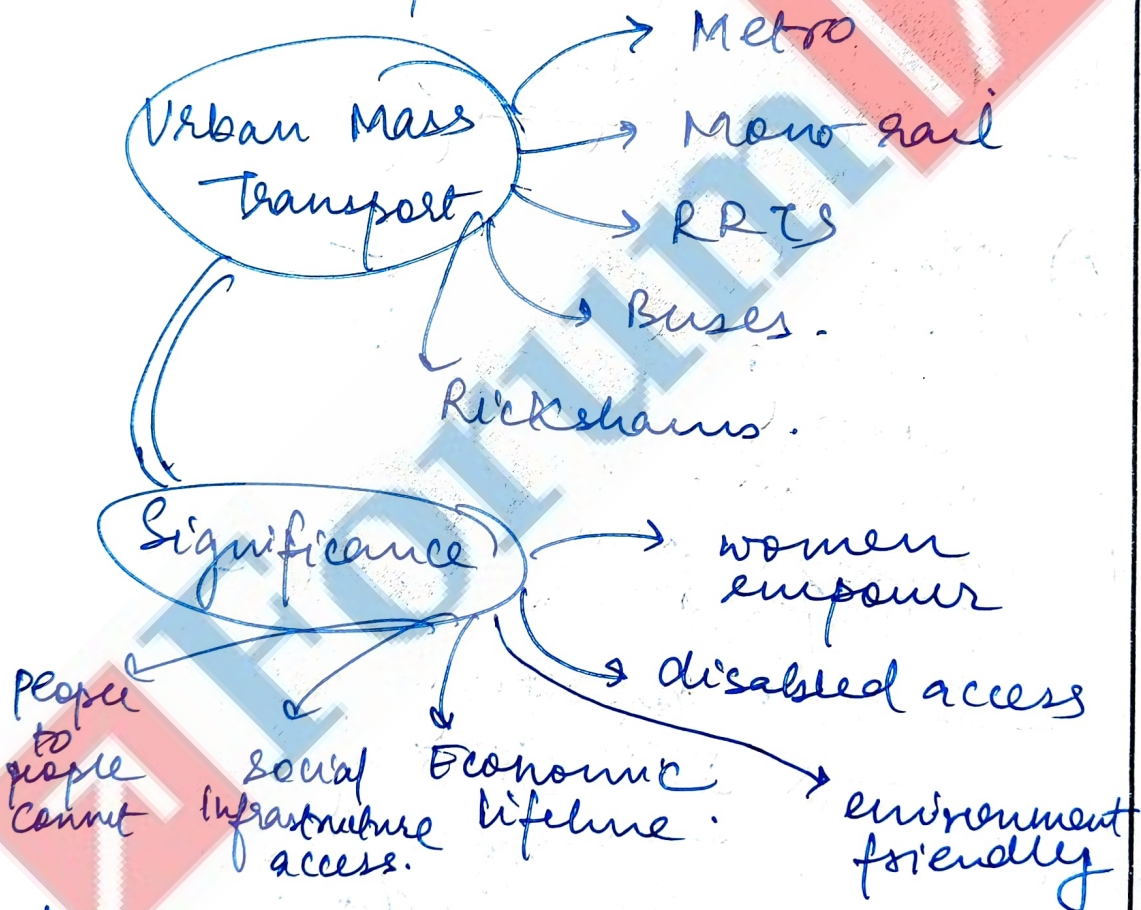 Urban Mass
Transport
Metro
Mono rail
RRTS
Buses.
Rickshaws.
Significance
women
empower
disabled access
environment
friendly
Economic
lifeline.
Social
infrastructure
access.
People
to
people
Connect
Forum